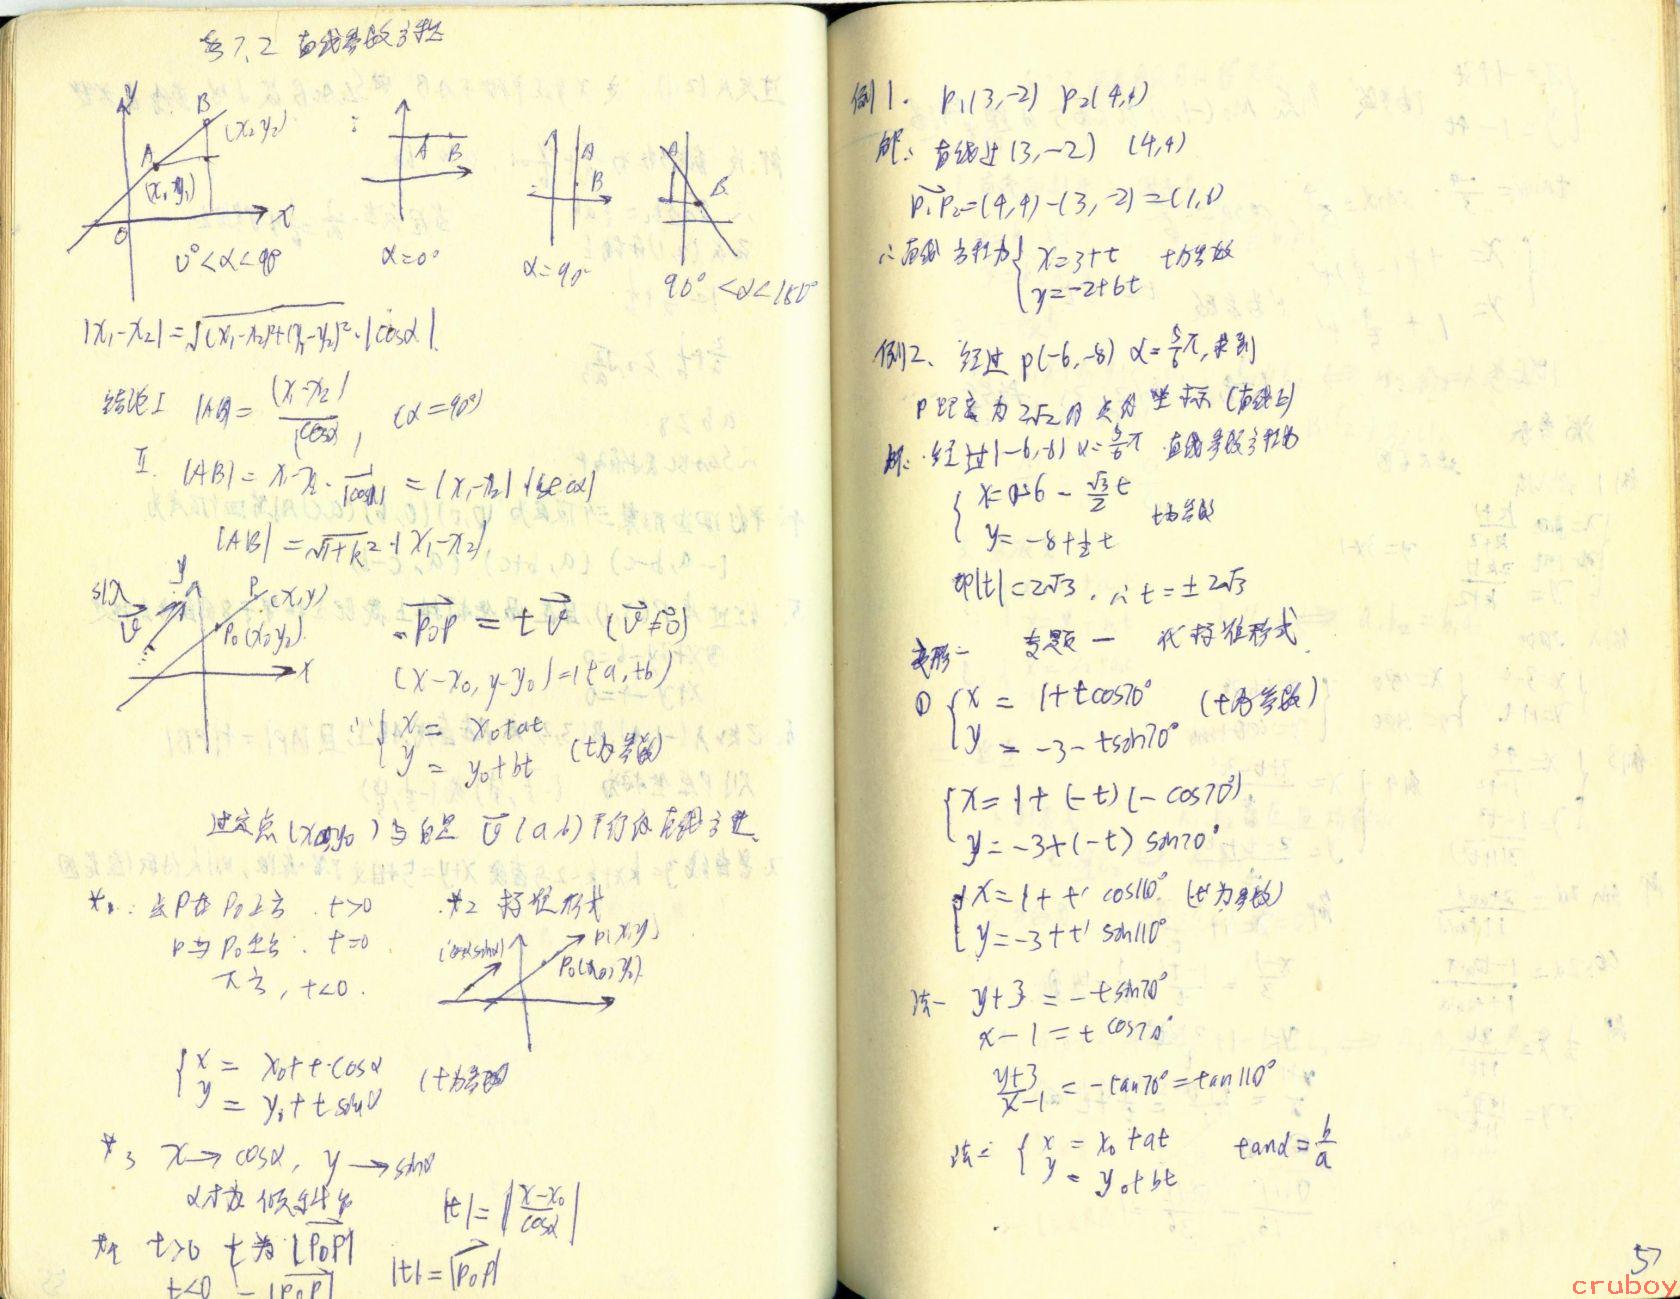 7.2 直线参数方程
y
B
(x₂ y₂)
A
(x₁ y₁)
O
x
0°<α<90°
A B
α=0°
A
B
α=90°
A
B
90°<α<180°
|x₁-x₂|=√(x₁-x₂)²+(y₁-y₂)²·|cosα|
结论I |AB|= |x₁-x₂| / |cosα| (α=90°)
II. |AB|= x₁-x₂ · 1/|cosα| = |x₁-x₂|·|secα|
|AB|=√1+k²·|x₁-x₂|
引入
v
y
P(x,y)
P₀(x₀y₂)
x
P₀P = t v (v≠0)
(x-x₀, y-y₀)=(ta, tb)
∴{ x = x₀+at
y = y₀+bt (t为参数)
过定点(x₀,y₀)与向量 v(a,b)平行的直线方程.
*1: 点P在P₀上方 . t>0
P与P₀重合 . t=0
下方, t<0.
*2 标准形式
(cosα sinα)
P(x,y)
P₀(x₀,y₀)
{ x = x₀+t·cosα
y = y₀+t sinα (t为参数)
*3 x→cosα, y→sinα
α才为倾斜角
|t|=|x-x₀ / cosα|
*4 t>0 t为|P₀P|
t<0 -|P₀P|
|t|=|P₀P|
例1. P₁(3,-2) P₂(4,4)
解: 直线过(3,-2) (4,4)
P₁P₂=(4,4)-(3,-2)=(1,6)
∴直线方程为{ x=3+t t为参数
y=-2+6t
例2、经过P(-6,-8) α=5/6π,求到
P距离为2√2的点的坐标(直线上)
解: 经过(-6,-8) α=5/6π 直线参数方程为
{ x=-6 - √3/2 t
y = -8+1/2 t t为参数
即|t|=2√3. ∴t=±2√3
变形一 专题一 化标准形式
① { x = 1+tcos70° (t为参数)
y = -3-tsin70°
{ x=1+(-t)(-cos70°)
y=-3+(-t) sin70°
{ x=1+t' cos110° (t'为参数)
y=-3+t' sin110°
法一 y+3 = -tsin70°
x-1 = t cos70°
y+3 / x-1 = -tan70°=tan110°
法二 { x = x₀+at tanα=b/a
y = y₀+bt
57
cruboy